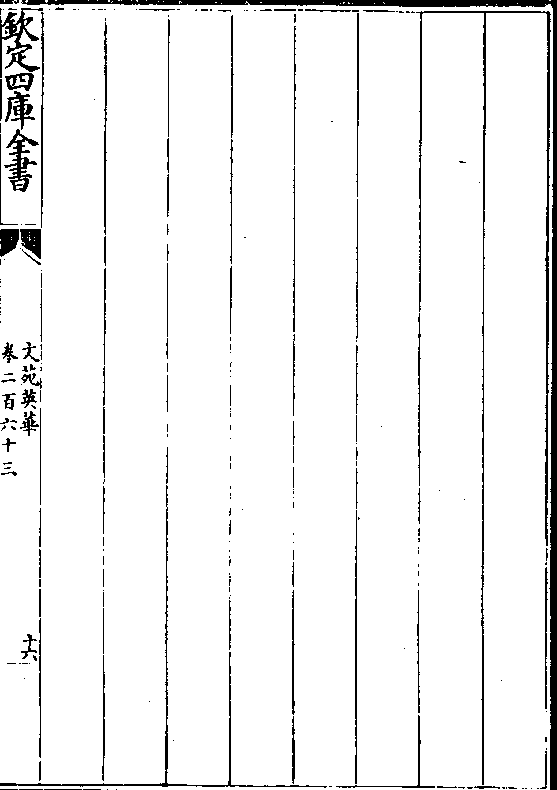 欽定四庫全書
文苑英華
卷二百六十三
十六